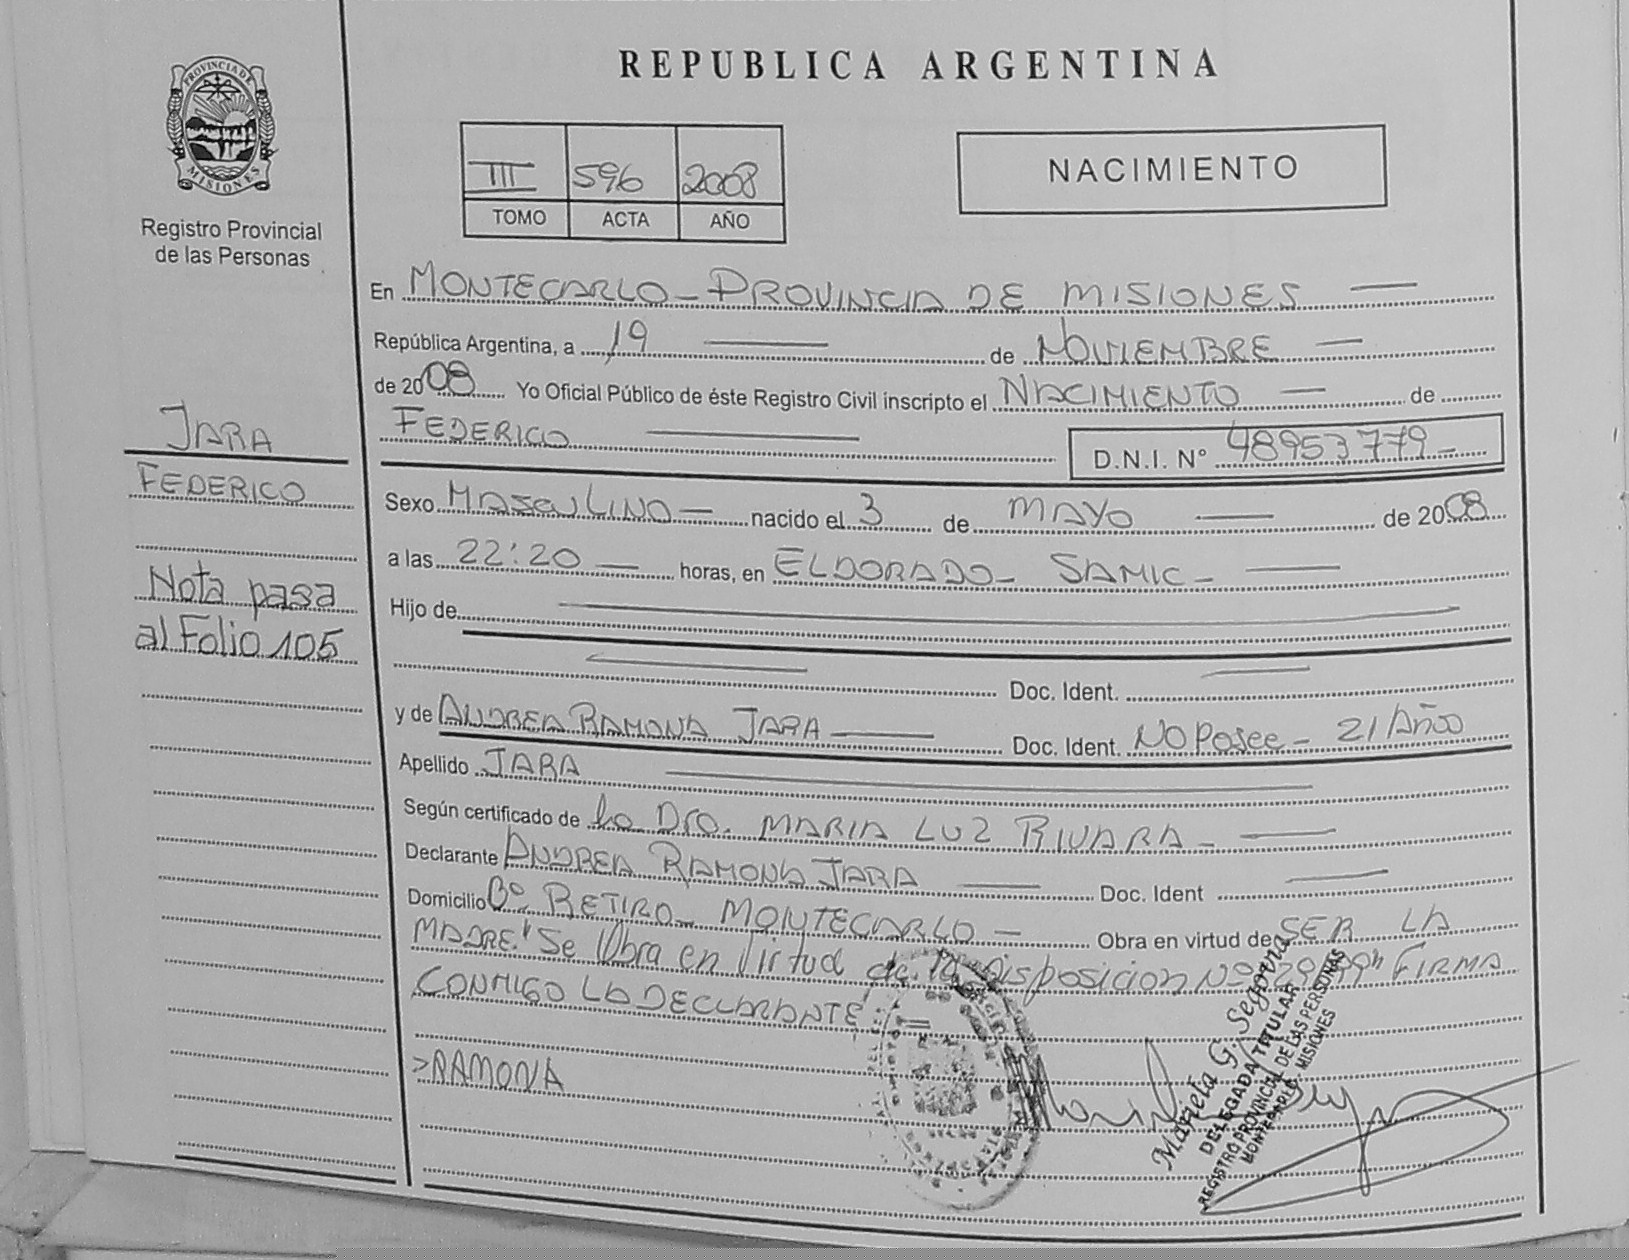 REPUBLICA ARGENTINA
PROVINCIA DE MISIONES
Registro Provincial
de las Personas
III 596 2008
TOMO ACTA AÑO
NACIMIENTO
En MONTECARLO - PROVINCIA DE MISIONES
República Argentina, a 19 de NOVIEMBRE
de 2008 Yo Oficial Público de éste Registro Civil inscripto el NACIMIENTO de
FEDERICO D.N.I. Nº 48953779-
JARA
FEDERICO
Nota pasa
al Folio 105
Sexo MASCULINO - nacido el 3 de MAYO de 2008
a las 22:20 horas, en ELDORADO - SAMIC -
Hijo de
Doc. Ident.
y de ANDREA RAMONA JARA Doc. Ident. NO Posee - 21 Año
Apellido JARA
Según certificado de La Dra. MARIA LUZ RIVARA -
Declarante ANDREA RAMONA JARA Doc. Ident
Domicilio Bº RETIRO - MONTECARLO - Obra en virtud de SER LA
MADRE." Se Obra en Virtud de la Disposicion Nº 29/99" FIRMA
CONMIGO LA DECLARANTE
>RAMONA
Mariela G. Segovia
DELEGADA TITULAR
REGISTRO PROVINCIAL DE LAS PERSONAS
MONTECARLO - MISIONES